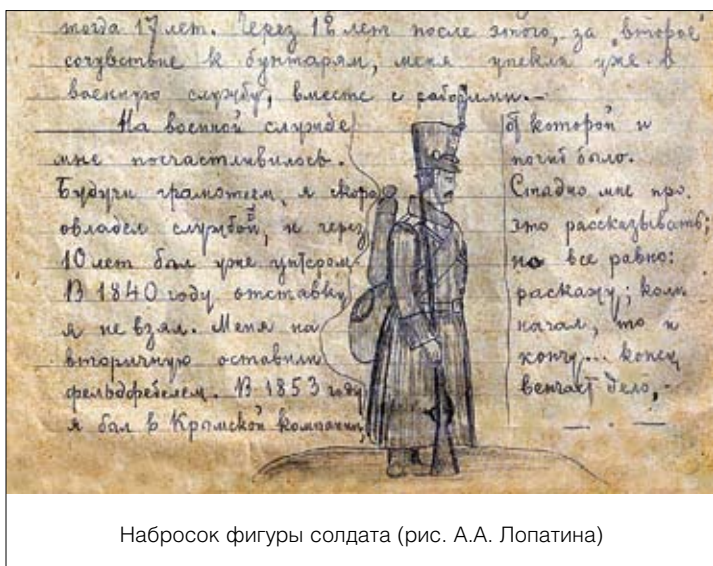 тогда 17 лет. Через 12 лет после этого, за "второе"
сочувствие к бунтарям, меня упекли уже в
военную службу, вместе с рабочими.—
На военной службе
мне посчастливилось.
Будучи грамотеем, я скоро
овладел службой, и через
10 лет был уже унтером.
В 1840 году отставку
я не взял. Меня на
вторичную оставили
фельдфебелем. В 1853 году
я был в Крымской компании,
от которой и
погиб было.
Стыдно мне про
это рассказывать;
но все равно:
раскажу; коли
начал, то и
кончу... конец
венчает дело,-
Набросок фигуры солдата (рис. А.А. Лопатина)